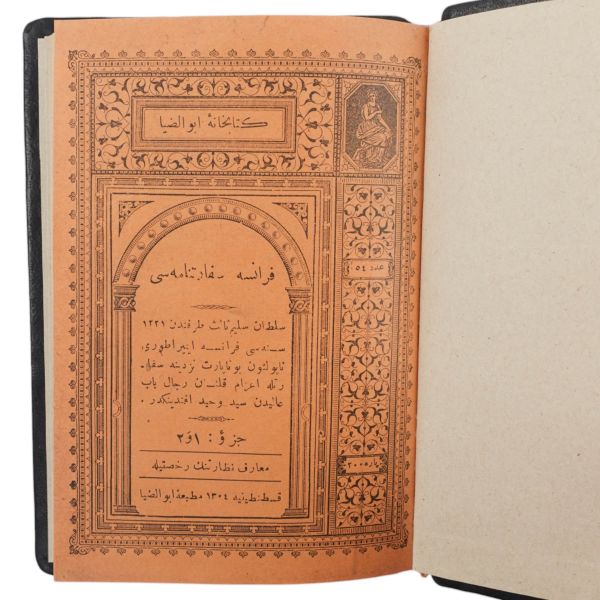 كتابخانهٔ ابوالضيا
عدد ٥٤
فرانسه سفارتنامه‌سى
سلطان سليم ثالث طرفندن ١٢٢١
سنه‌سى فرانسه ايپراطورى
ناپوليون بوناپارت نزدينه سفار-
رتله اعزام قلنان رجال باب
عاليدن سيد وحيد افندينكدر.
جزؤ: ١و٢
معارف نظارتنك رخصتيله
قسطنطينيه ١٣٠٤ مطبعهٔ ابوالضيا
پاره ٢٠٠